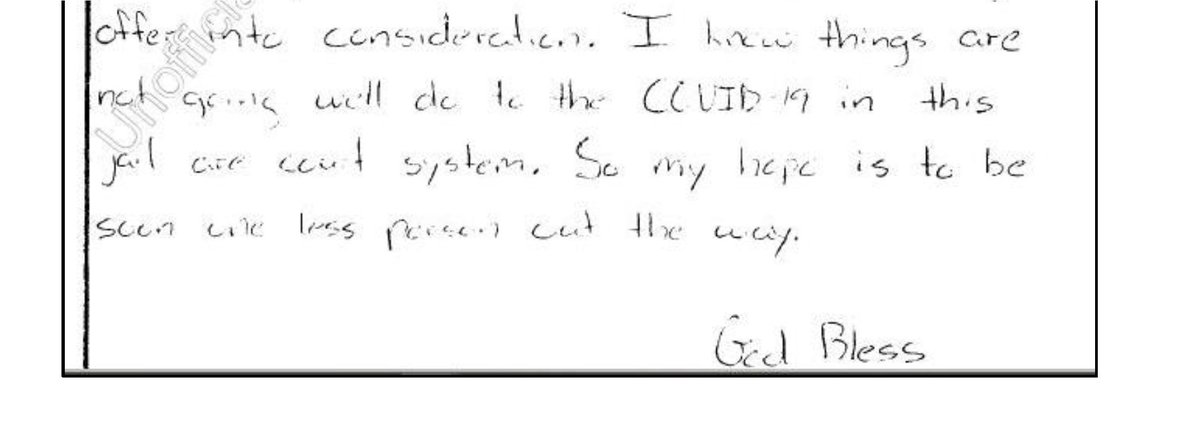 offer into consideration. I know things are
not going well do to the COVID-19 in this
jail are court system. So my hope is to be
soon one less person out the way.
God Bless
Unofficial